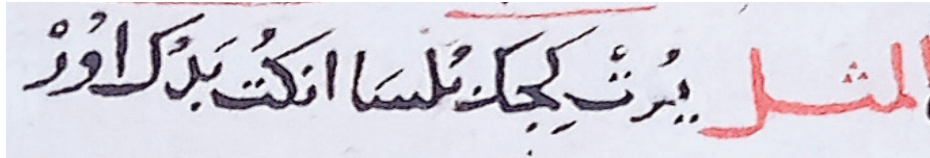 المثل يُرتْ كِجك بُلسَا انكتُ بَدُك اوُرْ